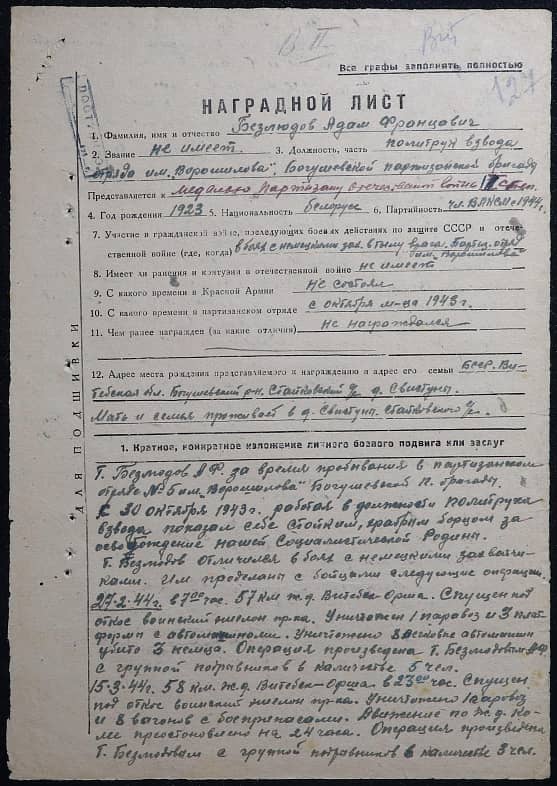 В П.
127
Все графы заполнять полностью
НАГРАДНОЙ ЛИСТ
1. Фамилия, имя и отчество Безлюдов Адам Францович
2. Звание не имеет. 3. Должность, часть политрук взвода
отряда им. "Ворошилова", Богушевской партизанской бригады
Представляется к медалью Партизану отечествен. войны II степ.
4. Год рождения 1923 5. Национальность белорус 6. Партийность чл. ВЛКСМ с 1944 г.
7. Участие в гражданской войне, последующих боевых действиях по защите СССР и отече-
ственной войне (где, когда) в боях с немецкими зах. в тылу врага. Партиз. отряд
им. Ворошилова
8. Имеет ли ранения и контузии в отечественной войне не имеет
9. С какого времени в Красной Армии не состоял
10. С какого времени в партизанском отряде с октября м-ца 1943 г.
11. Чем ранее награжден (за какие отличия) не награждался
12. Адрес места рождения представляемого к награждению и адрес его семьи БССР. Ви-
тебская обл. Богушевский р-н. Стайковский с/с д. Свистуны.
Мать и семья проживает в д. Свистуны. Стайковского с/с.
ДЛЯ ПОДШИВКИ
1. Краткое, конкретное изложение личного боевого подвига или заслуг
Т. Безлюдов А.Ф. за время пребывания в партизанском
отряде № 6 им. "Ворошилова" Богушевской п. бригады.
с 30 октября 1943 г. работая в должности политрука
взвода показал себе стойким, храбрым борцом за
освобождение нашей Социалистической Родины.
Т. Безлюдов отличился в боях с немецкими захватчи-
ками. Им проделаны с бойцами следующие операции.
27.2.44 г. в 7 00 час. 57 км ж.д. Витебск-Орша. Спущен под
откос воинский эшелон пр-ка. Уничтожен 1 паровоз и 3 плат-
формы с автомашинами. Уничтожено 8 автомашин
убито 3 немца. Операция произведена Т. Безлюдовым А.Ф.
с группой подрывников в количестве 5 чел.
15.3.44 г. 58 км. ж.д. Витебск-Орша в 23 00 час. Спущен
под откос воинский эшелон пр-ка. Уничтожено 1 паровоз
и 8 вагонов с боеприпасами. Движение по ж.д. ко-
лее приостановлено на 24 часа. Операция произведена
Т. Безлюдовым с группой подрывников в количестве 3 чел.